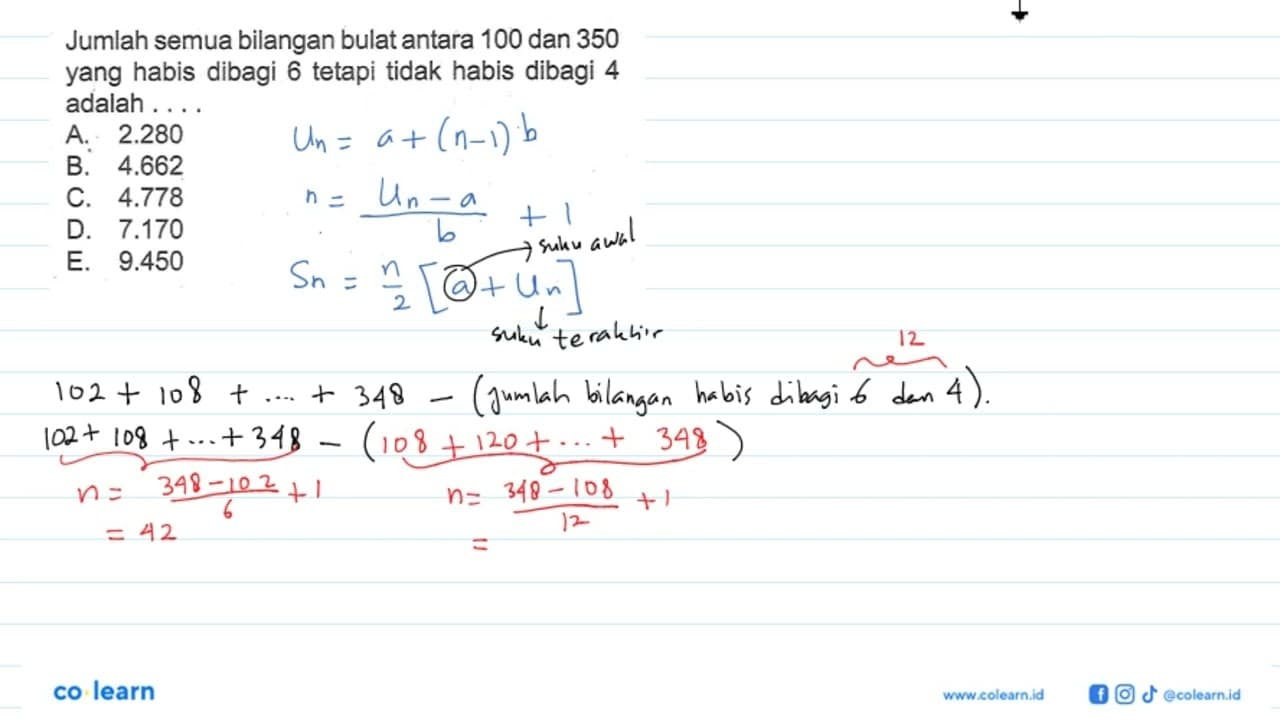 Jumlah semua bilangan bulat antara 100 dan 350
yang habis dibagi 6 tetapi tidak habis dibagi 4
adalah . . . .
A. 2.280
B. 4.662
C. 4.778
D. 7.170
E. 9.450
Un = a + (n-1) b
n = Un - a / b + 1
suku awal
Sn = n/2 [a + Un]
suku terakhir
12
102 + 108 + .... + 348 - (jumlah bilangan habis dibagi 6 dan 4).
102 + 108 + ... + 348 - (108 + 120 + ... + 348)
n = 348 - 102 / 6 + 1
= 42
n = 348 - 108 / 12 + 1
=
co learn
www.colearn.id
@colearn.id